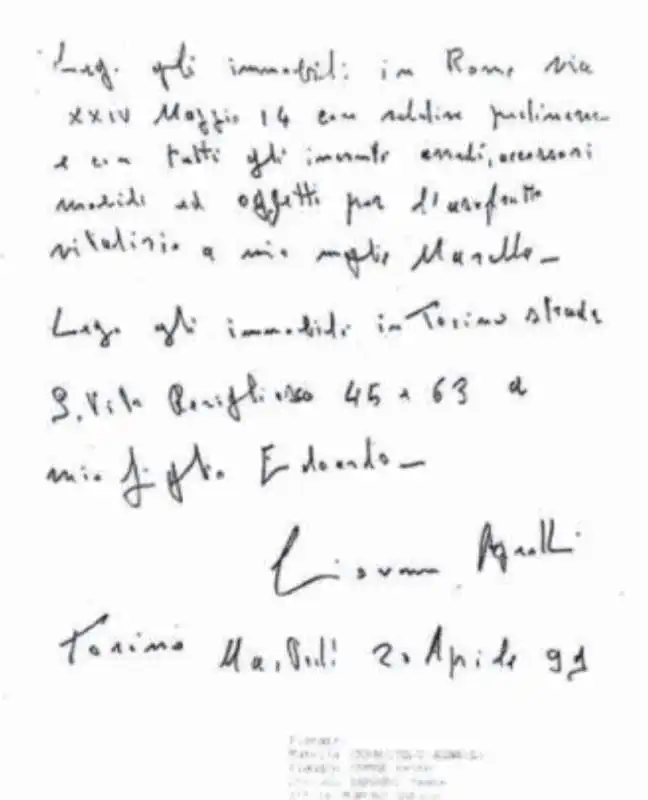 Lego gli immobili in Roma via
XXIV Maggio 14 con relative pertinenze
e con tutti gli inerenti arredi, accessori
mobili ed oggetti per l'usufrutto
vitalizio a mia moglie Marella –
Lego gli immobili in Torino strada
S. Vito Revigliasco 45 e 63 a
mio figlio Edoardo –
Giovanni Agnelli
Torino Martedì 20 Aprile 99